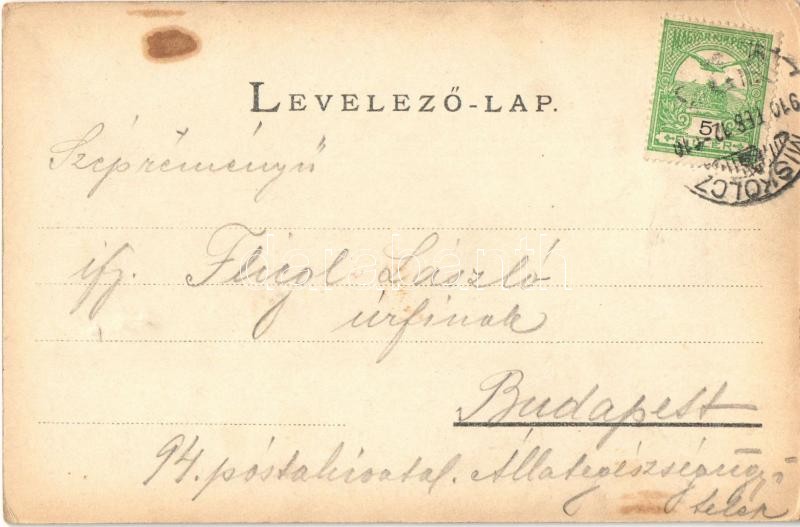 LEVELEZŐ-LAP.
MAGYAR KIR. POSTA
5
FILLÉR
MISKOLCZ
910 FEB 12
Szépreményű
ifj. Fligl László
úrfinak
Budapest
94. póstahivatal. Állategészségügyi-
telep
darabanth